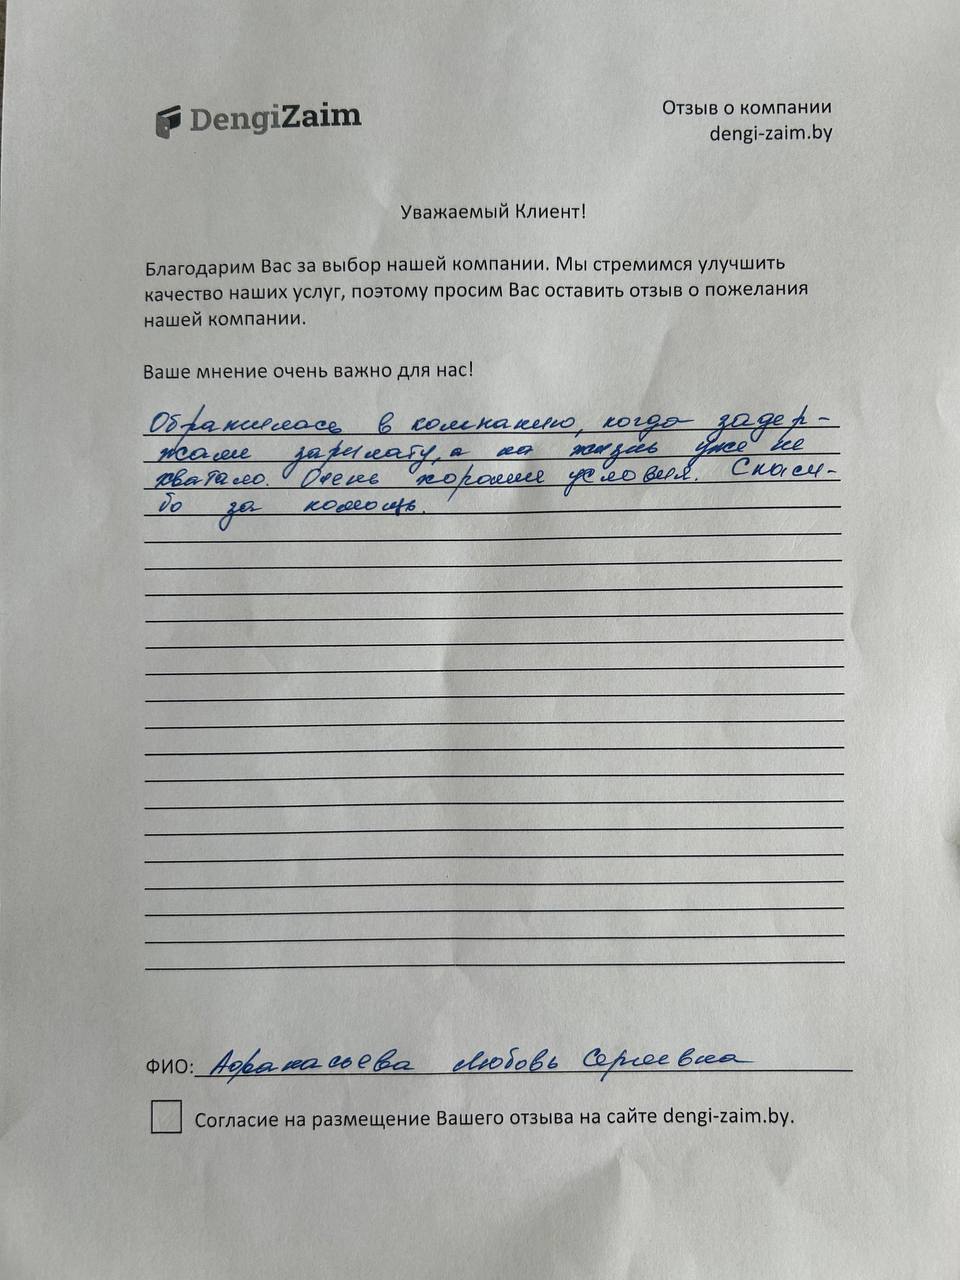 DengiZaim
Отзыв о компании
dengi-zaim.by
Уважаемый Клиент!
Благодарим Вас за выбор нашей компании. Мы стремимся улучшить
качество наших услуг, поэтому просим Вас оставить отзыв о пожелания
нашей компании.
Ваше мнение очень важно для нас!
Обратилась в компанию, когда задер-
жали зарплату, а на жизнь уже не
хватало. Очень хорошие условия. Спаси-
бо за помощь.
ФИО: Афанасьева Любовь Сергеевна
Согласие на размещение Вашего отзыва на сайте dengi-zaim.by.